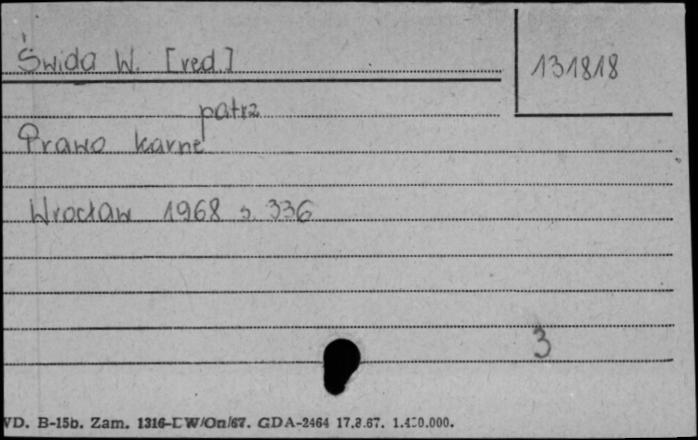 Świda W. [red.]
131818
patrz
Prawo karne
Wrocław 1968 s. 336
3
VD. B-15b. Zam. 1316-DW/On/67. GDA-2464 17.8.67. 1.400.000.